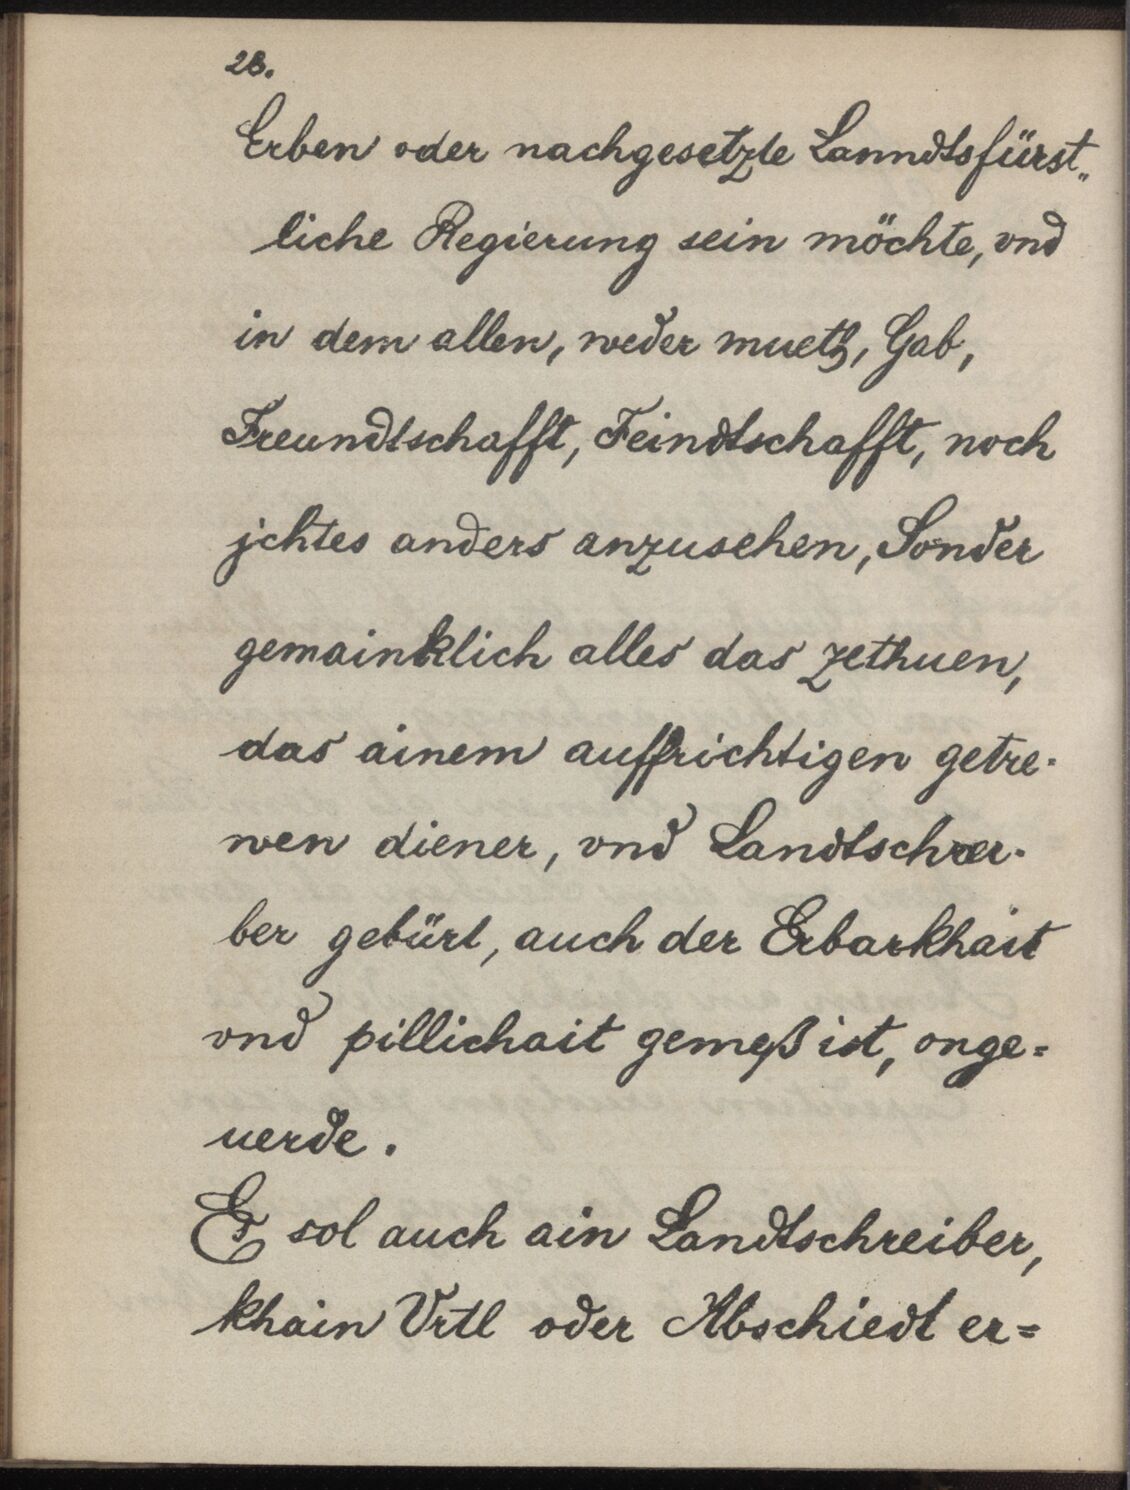 28.
Erben oder nachgesetzte Lanndtsfürst„
liche Regierung sein möchte, vnd
in dem allen, weder mueth, Gab,
Freundtschafft, Feindtschafft, noch
jchtes anders anzusehen, Sonder
gemainklich alles das zethuen,
das ainem auffrichtigen getre-
wen diener, vnd Landtschrei-
ber gebürt, auch der Erbarkhait
vnd pillichait gemeß ist, onge=
uerde.
Es sol auch ain Landtschreiber,
khain Vrtl oder Abschiedt er=